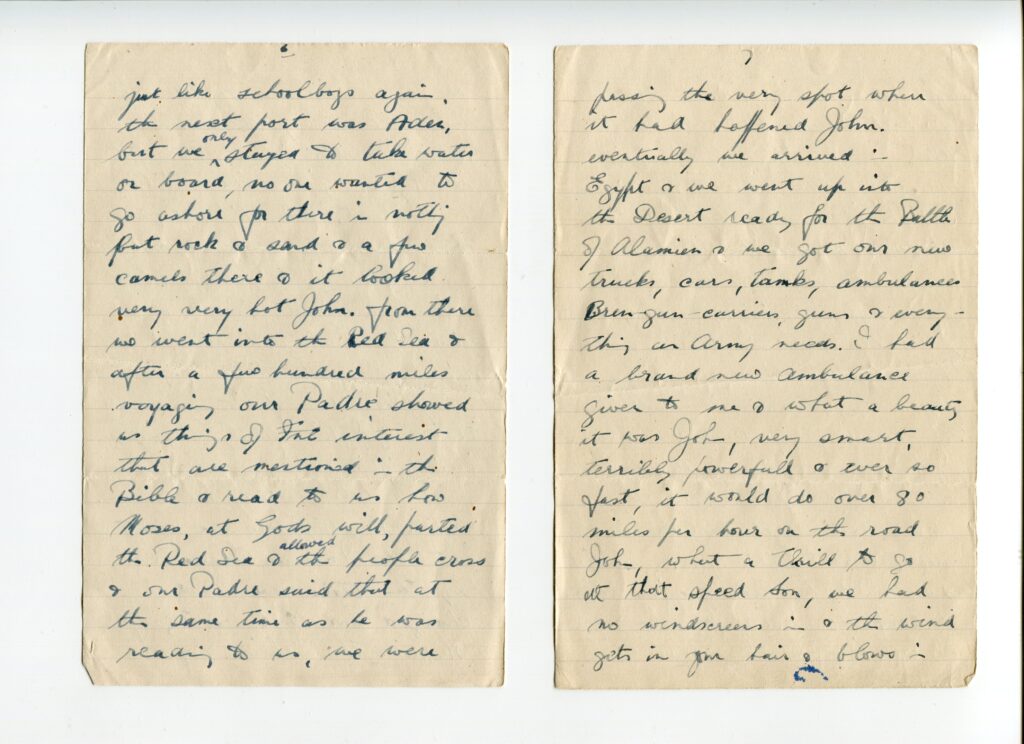 6
just like schoolboys again.
the next port was Aden,
but we only stayed to take water
on board, no one wanted to
go ashore for there is nothing
but rock & sand & a few
camels there & it looked
very very hot John. from there
we went into the Red Sea &
after a few hundred miles
voyaging our Padre showed
us things of Int interest
that are mentioned in the
Bible & read to us how
Moses, at Gods will, parted
the Red Sea & allowed the people cross
& our Padre said that at
the same time as he was
reading to us, we were
7
passing the very spot where
it had happened John.
eventually we arrived in
Egypt & we went up into
the Desert ready for the Battle
of Alamien & we got our new
trucks, cars, tanks, ambulances
Bren-gun-carriers, guns & every-
thing an Army needs. I had
a brand new ambulance
given to me & what a beauty
it was John, very smart,
terribly powerfull & ever so
fast, it would do over 80
miles per hour on the road
John, what a thrill to go
at that speed Son, we had
no windscreens in & the wind
gets in your hair & blows in